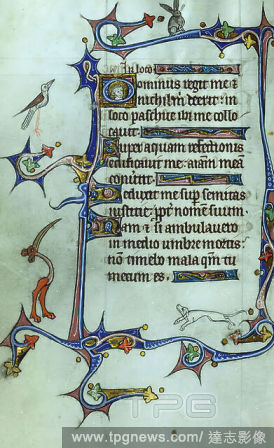 loco
Dominus regit me &
nichil m̄ deerit: in
loco pascue ibi me collo
cauit.
Super aquam refectionis
educauit me: aīam meā
conuertit.
Deduxit me sup semitas
iusticie: ppt̄ nomen suum.
Nam & si ambulauero
in medio umbre mortis:
timebo mala qm̄ tu
mecum es.
TPG
www.tpgnews.com/達志影像